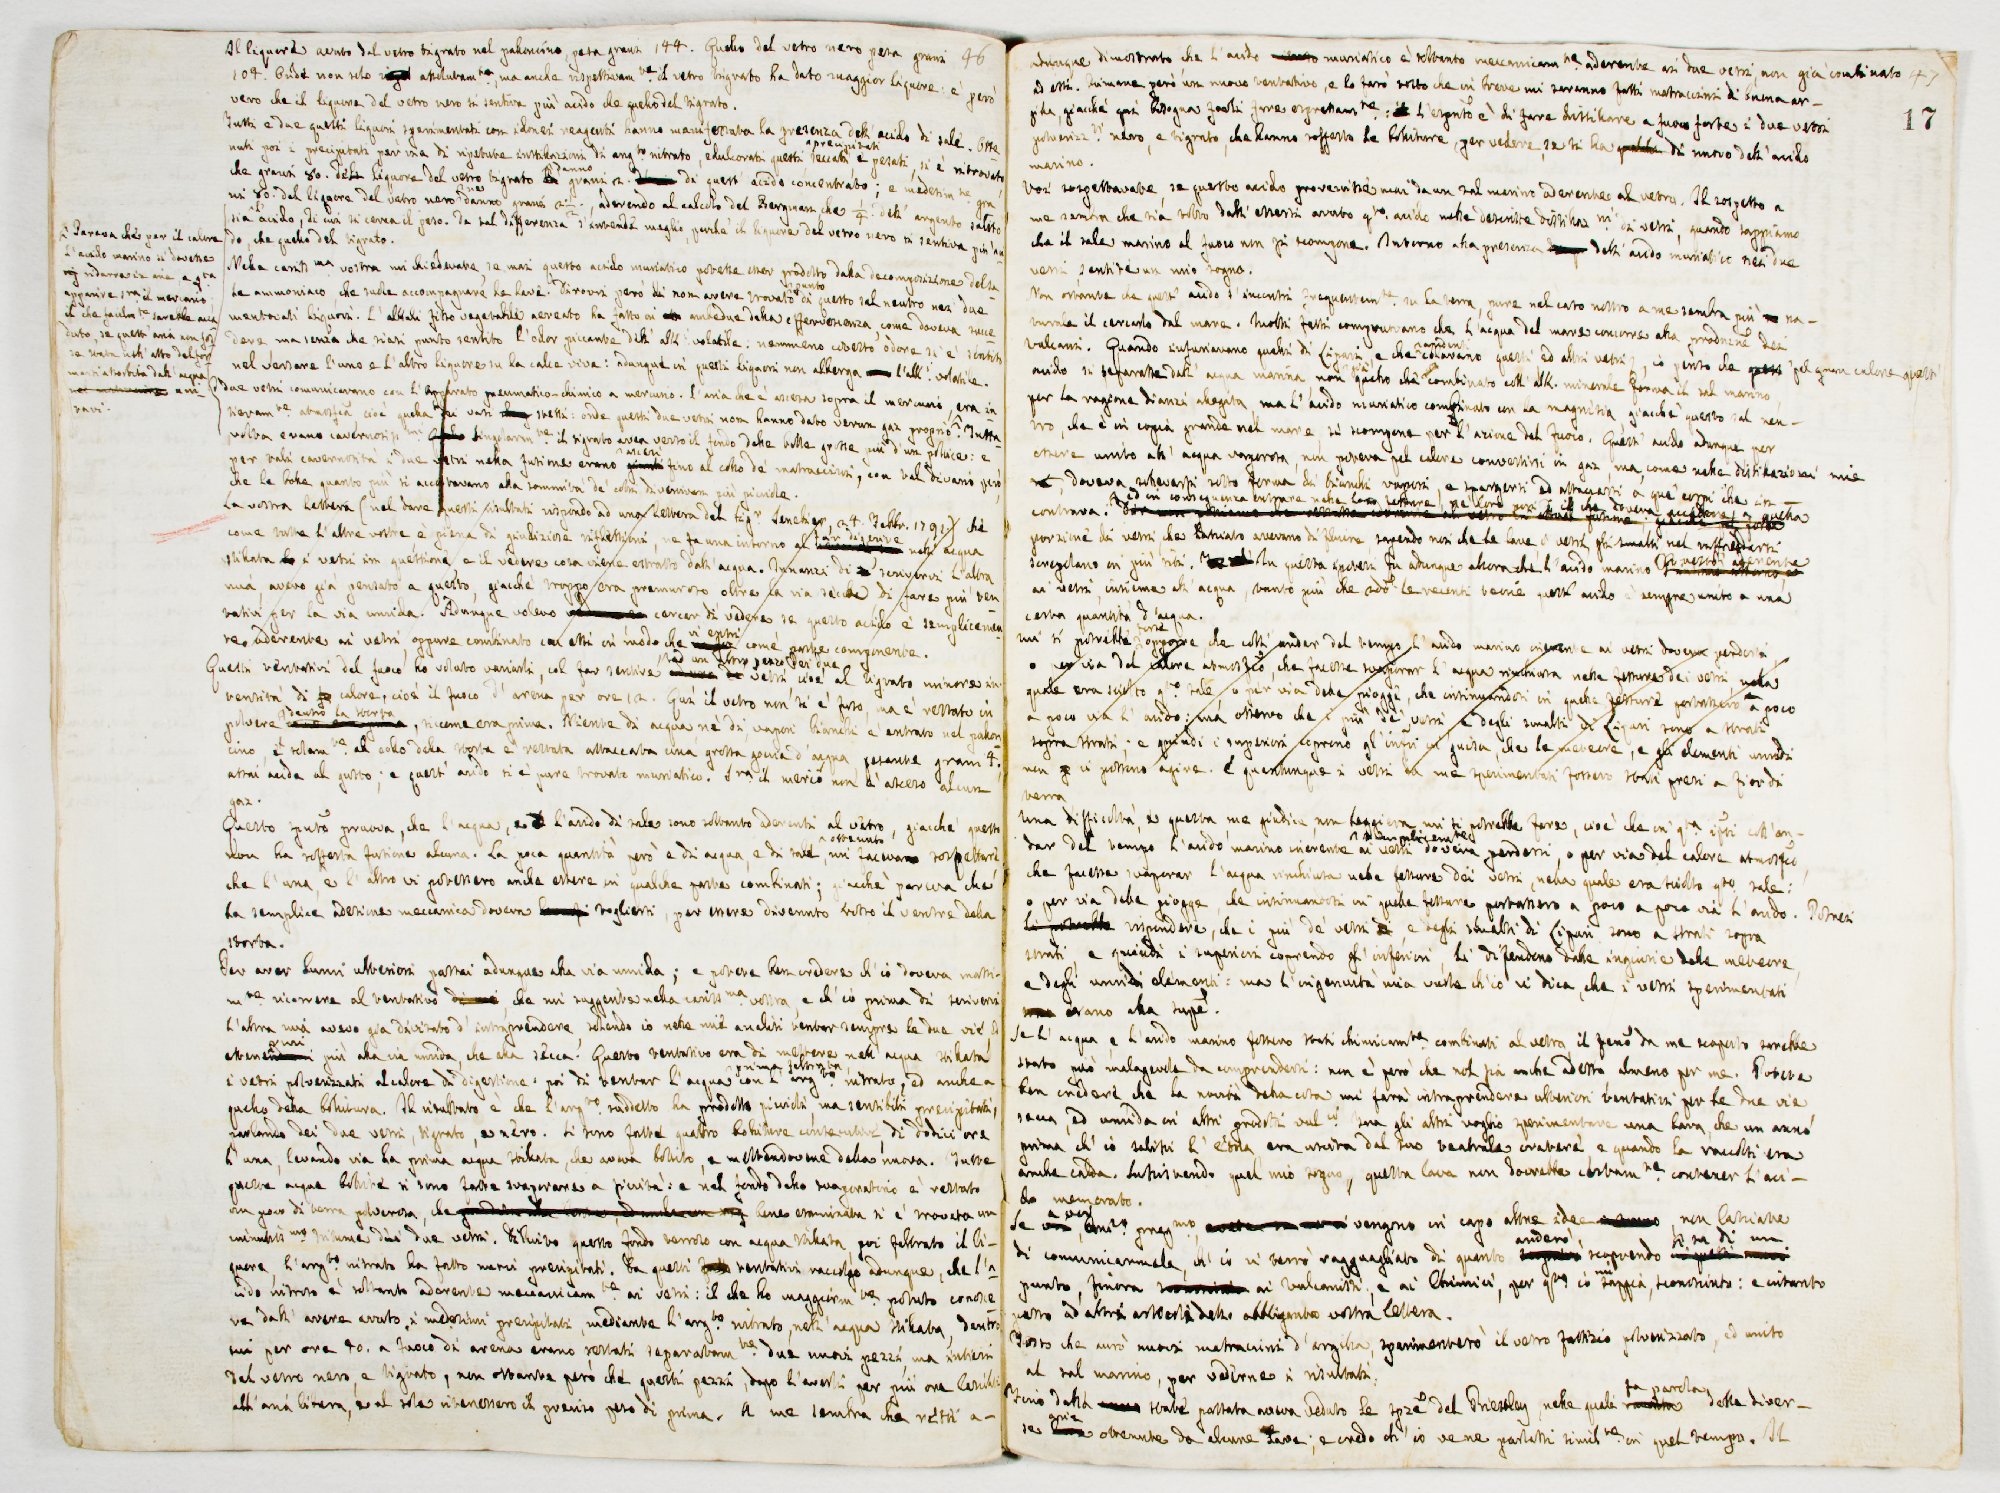 46
Il liquore avuto dal vetro tigrato nel palloncino pesa grani 144. Quello del vetro nero pesa grani
104. Onde non solo assolutam.te, ma anche rispettivam.te il vetro tigrato ha dato maggior liquore: è però
vero che il liquore del vetro nero si sentiva più acido che quello del tigrato.
Tutti e due questi liquori sperimentati con idonei reagenti hanno manifestata la presenza dell'acido di sale. Otte-
nuti poi i precipitati per via di ripetute instillazioni di arg.to nitrato, edulcorati questi precipitati seccati e pesati, si è ritrovato
che grani 80. del liquore del vetro tigrato danno grani di quest'acido concentrato; e medesim.te gra-
ni 80. del liquore del vetro nero danno grani, aderendo al calcolo del Bergman che 1/4 dell'argento salito
sia acido, di cui si cerca il peso. Da tal differenza s'intende meglio, perché il liquore del vetro nero si sentiva più aci-
do, che quello del tigrato.
Nella cariss.ma vostra mi chiedevate, se mai questo acido muriatico potesse esser prodotto dalla decomposizione del sa-
le ammoniaco, che suole accompagnare le lave. Dirovvi però di non avere trovato punto di questo sal neutro nei due
mentovati liquori. L'alkali fisso vegetabile aereato ha fatto in ambedue della effervescenza, come doveva succe-
dere ma senza che siasi punto sentito l'odor piccante dell'alk. volatile: nemmeno cotesto odore si è sentito
nel versare l'uno e l'altro liquore su la calce viva: adunque in questi liquori non alberga l'alk. volatile.
I due vetri comunicavano con l'apparato pneumatico-chimico a mercurio. L'aria che è ascesa sopra il mercurio, era in-
tieram.te atmosf.a cioè quella dei vasi stessi: onde questi due vetri non hanno dato verun gaz proprio. Tutta-
volta erano cavernosiss.mi singolarm.te il tigrato avea verso il fondo delle bolle grosse più d'un pollice: e
per tali cavernosità i due vetri nella fusione erano ascesi fino al collo de' matraccini, con tal divario però
che le bolle quanto più si accostavano alla sommità de' colli divenivan più picciole.
La vostra Lettera (nel dare questi risultati rispondo ad una Lettera del Sig.r Senebier, 24. Febbr. 1792) che
come tutte l'altre vostre è piena di giudiziose riflessioni, ne fa una intorno al far digerire nell'acqua
stillata i vetri in questione, e il vedere cosa viene estratto dall'acqua. Innanzi di scrivervi l'altra
mia, avevo già pensato a questo, giacché troppo era premuroso oltre la via secca di fare più ten-
tativi per la via umida. Adunque volevo cercar di vedere se questo acido è semplicemen-
te aderente ai vetri, oppure combinato con essi in modo che vi entri come parte componente.
Questi tentativi del fuoco, ho voluto variarli, col far sentire ad un altro pezzo dei due vetri cioè al tigrato minore in-
tensità di calore, cioè il fuoco d'arena per ore 12. Qui il vetro non si è fuso, ma è restato in
polvere dentro la storta, siccome era prima. Niente di acqua né di vapori bianchi è entrato nel pallon-
cino, e solam.te al collo della storta è restata attaccata una grossa goccia d'acqua pesante grani 4.
assai acida al gusto; e quest'acido si è pure trovato muriatico. Fra il merc.o non è asceso alcun
gaz.
Questo prova, che l'acqua, e l'acido di sale sono soltanto aderenti al vetro, giacché questo
non ha sofferta fusione alcuna. La poca quantità però e di acqua, e di sale ottenuto, mi faceva sospettare
che l'una, e l'altro vi potessero anche essere in qualche parte combinati; giacché pareva che
la semplice adesione meccanica doveva togliersi, per essere divenuto rosso il ventre della
storta.
Per aver lumi ulteriori passai adunque alla via umida; e potete ben credere ch'io doveva massi-
m.te ricorrere al tentativo che mi suggerite nella cariss.ma vostra, e ch'io prima di scrivervi
l'altra mia avevo già divisato d'intraprendere, solendo io nelle mie analisi tentar sempre le due vie,
attenermi più alla via umida, che alla secca. Questo tentativo era di mettere nell'acqua stillata
i vetri polverizzati al calore di digestione: poi di tentar l'acqua prima feltrata con l'arg.to nitrato, ed anche a
quello della bollitura. Il risultato è che l'arg.to suddetto ha prodotti piccioli ma sensibili precipitati,
parlando dei due vetri, tigrato, e nero. Si sono fatte quattro bolliture consecutive, di dodici ore
l'una, levando via la prima acqua stillata, che aveva bollito, e mettendovene della nuova. Tutte
queste acque bollite si sono fatte svaporare a siccità: e nel fondo dello svaporatorio è restato
un poco di terra polverosa, che bene esaminata si è trovata un
minutiss.mo tritume dei due vetri. Bollivo questo fondo terroso con acqua stillata, poi feltrato il li-
quore, l'arg.to nitrato ha fatto nuovi precipitati. Da questi tentativi raccolgo adunque, che l'a-
cido nitroso è soltanto aderente meccanicam.te ai vetri: il che ho maggiorm.te potuto conosce-
re dall'avere avuto i medesimi precipitati, mediante l'arg.to nitrato, nell'acqua stillata, dentro
cui per ore 40. a fuoco di arena erano restati separatam.te due nuovi pezzi, ma intieri
del vetro nero, e tigrato, non ostante però che questi pezzi, dopo l'averli per più ore lasciati
all'aria libera, e al sole ritenessero il preciso peso di prima. A me sembra che resti a-
Pareva che per il calore
l'acido marino si dovesse
ridurre in aria, e q.ta
apparire fra il mercurio;
il che facilm.te sarebbe acca-
duto, se quest'aria non fos-
se stata nell'atto del for-
marsi assorbita dall'acqua
47
17
dunque dimostrato che l'acido muriatico è soltanto meccanicam.te aderente ai due vetri, non già combinato
ad essi. Rimane però un nuovo tentativo, e lo farò tosto che in breve mi saranno fatti matraccini di buona ar-
gilla, giacché qui bisogna farli fare espressam.te: l'esperim.to è di fare distillare a fuoco forte i due vetri
polverizz.ti nero, e tigrato, che hanno sofferto le bolliture, per vedere, se si ha di nuovo dell'acido
marino.
Voi sospettavate se questo acido provenisse mai da un sal marino aderente al vetro. Il sospetto a
me sembra che sia tolto dall'essersi avuto q.to acido nelle descritte distillaz.ni di vetri, quando sappiamo
che il sale marino al fuoco non si scompone. Intorno alla presenza dell'acido muriatico nei due
vetri sentite un mio sogno.
Non ostante che quest'acido s'incontri frequentem.te su la terra, pure nel caso nostro a me sembra più na-
turale il cercarlo dal mare. Molti fatti comprovano che l'acqua del mare concorre alla produz.ne dei
vulcani. Quando infuriavano quelli di Lipari, e che colavano candenti questi ed altri vetri, io penso che pel gran calore quest'
acido si separasse dall'acqua marina non già quello che combinato coll'alk. minerale forma il sal marino,
per la ragione dianzi allegata, ma l'acido muriatico combinato con la magnesia giacché questo sal neu-
tro, che è in copia grande nel mare, si scompone per l'azione del fuoco. Quest'acido adunque per
essere unito all'acqua vaporosa, non poteva pel calore convertirsi in gaz, ma, come nelle distillazioni mie
doveva sollevarsi sotto forma di bianchi vapori, e spargersi ed attaccarsi a que' corpi che in-
contrava. ed in conseguenza entrare nelle loro fessure, il che doveva accadere a quella
porzione di vetri che lasciato avevano di fluire sapendo noi che le lave i vetri, gli smalti nel raffreddarsi
screpolano in più siti. In questa ipotesi fu adunque allora che l'acido marino si vestì aderente
ai vetri, insieme all'acqua, tanto più che secondo le recenti teorie quest'acido è sempre unito a una
certa quantità d'acqua.
Mi si potrebbe forse opporre che coll'andar del tempo l'acido marino inerente ai vetri doveva perdersi
o per via del calore atmosf.co, che facesse svaporar l'acqua rinchiusa nelle fessure dei vetri nella
quale era sciolto q.to sale, o per via delle pioggie, che insinuandosi in quelle fessure portassero a poco
a poco via l'acido: ma osservo che i più de' vetri e degli smalti di Lipari sono a strati
sopra strati; e quindi i superiori coprono gl'inf.ri in guisa, che le meteore, e gli elementi umidi
non vi possono agire. E quantunque i vetri da me sperimentati fossero stati presi a fior di
terra
Una difficoltà, e questa me giudice, non leggiera mi si potrebbe fare, cioè che in q.ta ipotesi coll'an-
dar del tempo l'acido marino semplicem.te inerente ai vetri doveva perdersi, o per via del calore atmosf.co,
che facesse svaporar l'acqua rinchiusa nelle fessure dei vetri, nella quale era sciolto q.to sale:
o per via delle piogge che insinuandosi in quelle fessure portassero a poco a poco via l'acido. Potrei
rispondere, che i più de' vetri e degli smalti di Lipari sono a strati sopra
strati, e quindi i superiori coprendo gl'inferiori, li difendono dalle ingiurie delle meteore,
e degli umidi elementi: ma l'ingenuità mia vuole ch'io vi dica, che i vetri sperimentati
erano alla superf.e.
Se l'acqua e l'acido marino fossero stati chimicam.te combinati al vetro, il fen.o da me scoperto sarebbe
stato più malagevole da comprendersi: non è però che nol sia anche adesso almeno per me. Potete
ben credere che la novità della cosa mi farà intraprendere ulteriori tentativi per le due vie
secca, ed umida in altri prodotti vulc.i fra gli altri voglio sperimentare una lava, che un anno
prima ch'io salissi l'Etna era uscita dal suo teatrale cratere, e quando la raccolsi era
anche calda. Sussistendo quel mio sogno, questa lava non dovrebbe certam.te contener l'aci-
do memorato.
Se a voi, amico preg.mo, vengono in capo altre idee, non lasciate
di comunicarmele, ch'io vi terrò ragguagliato di quanto anderò scoprendo
punto, finora ai Vulcanisti, e ai Chimici, per q.to io mi sappia, sconosciuto: e intanto
passo ad altri articoli della obbligante vostra Lettera.
Tosto che avrò nuovi matraccini d'argilla, sperimenterò il vetro fattizio polverizzato, ed unito
al sal marino, per vederne i risultati.
Fino dalla state passata aveva veduto le spze del Priestley, nelle quali fa parola delle diver-
se arie ottenute da alcune Lave; e credo ch'io ve ne parlassi simil.te in quel tempo. Il